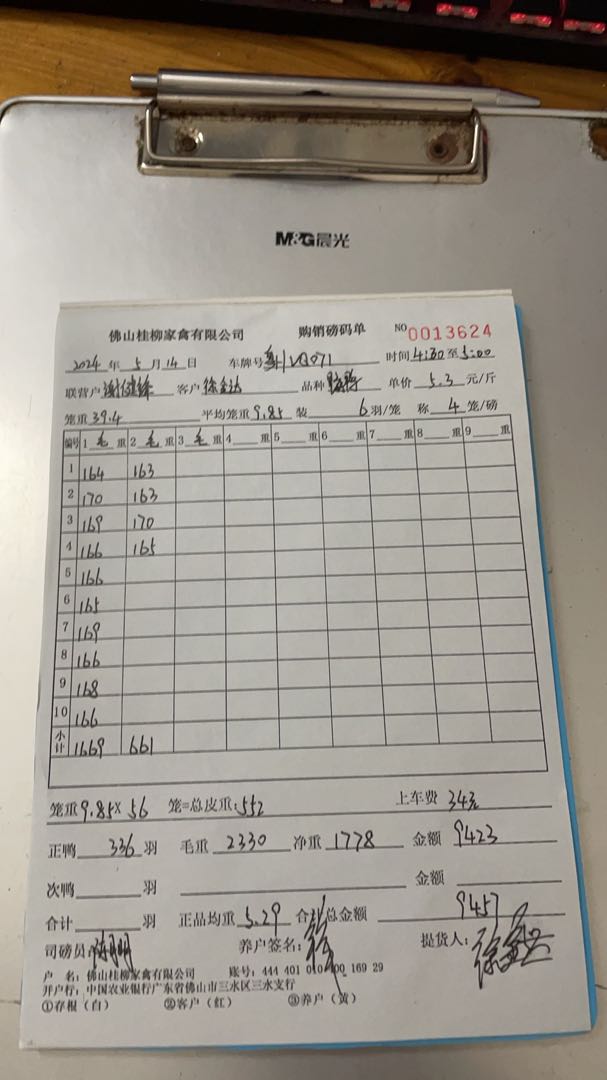 M&G晨光
佛山桂柳家禽有限公司 购销磅码单 NO 0013624
2024年5月14日 车牌号 VQ071 时间4:30至5:00
联营户 客户 徐 品种 单价 5.3 元/斤
笼重39.4 平均笼重9.85 装 6 羽/笼 称 4 笼/磅
编号 1 毛 重 2 毛 重 3 毛 重 4 重 5 重 6 重 7 重 8 重 9 重
1 164 163
2 170 163
3 169 170
4 166 165
5 166
6 165
7 169
8 166
9 168
10 166
小计 1669 661
笼重9.85× 56 笼=总皮重:552 上车费 34元
正鸭 336 羽 毛重 2330 净重 1778 金额 9423
次鸭 羽 金额
合计 羽 正品均重 5.29 合计总金额 9457
司磅员: 养户签名: 提货人: 徐
户 名: 佛山桂柳家禽有限公司 账号: 444 401 010 400 169 29
开户行: 中国农业银行广东省佛山市三水区三水支行
①存根(白) ②客户(红) ③养户(黄)